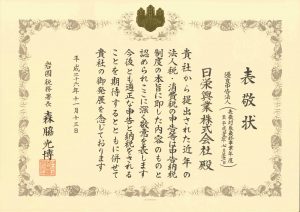 表敬状
優良申告法人
日栄興業株式会社 殿
貴社から提出された近年の
法人税・消費税の申告等は申告納税
制度の本旨に即した内容のものと
認められここに深く敬意を表します
今後とも適正な申告と納税をされる
ことを期待するとともに併せて
貴社の御発展を念じております
平成二十六年十一月十三日
岩国税務署長
森脇光博